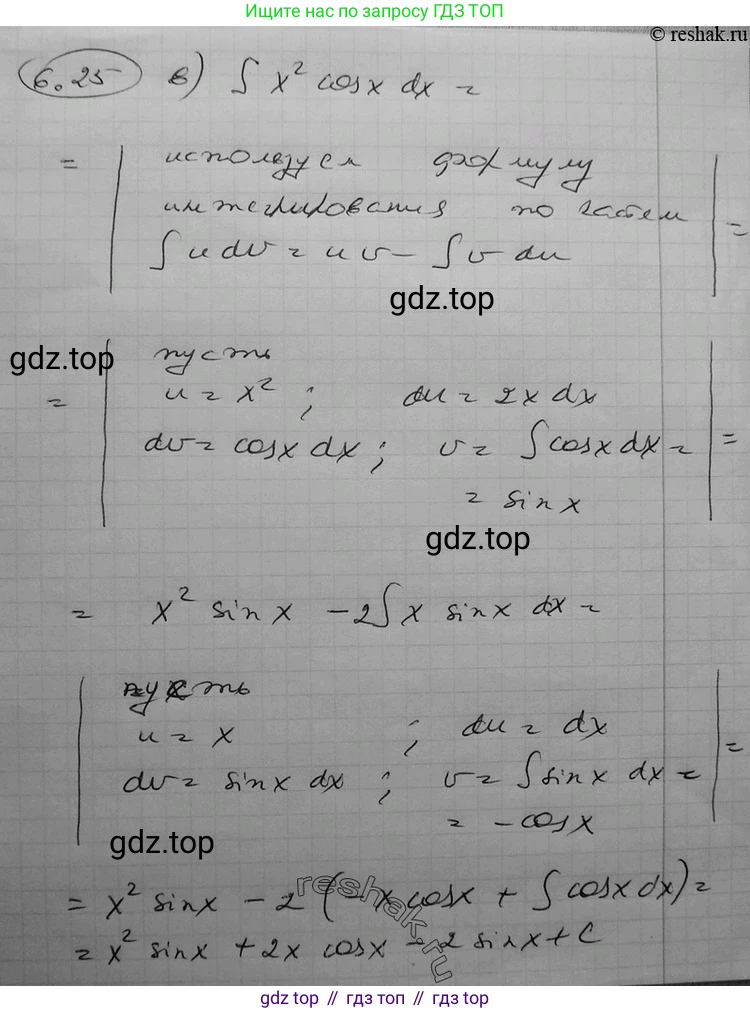 Ищите нас по запросу ГДЗ ТОП
© reshak.ru
6.25 в) ∫ x² cosx dx =
= | используем формулу
интегрирования по частям
∫ u dv = u v - ∫ v du | =
gdz.top
gdz.top
= | пусть
u = x² ; du = 2x dx
dv = cosx dx ; v = ∫ cosx dx = | =
= sinx
gdz.top
= x² sinx - 2∫ x sinx dx =
| пусть
u = x ; du = dx
dv = sinx dx ; v = ∫ sinx dx = | =
= -cosx
gdz.top
= x² sinx - 2 (-x cosx + ∫ cosx dx) =
reshak.ru
= x² sinx + 2x cosx - 2 sinx + C
gdz top // гдз топ // gdz top